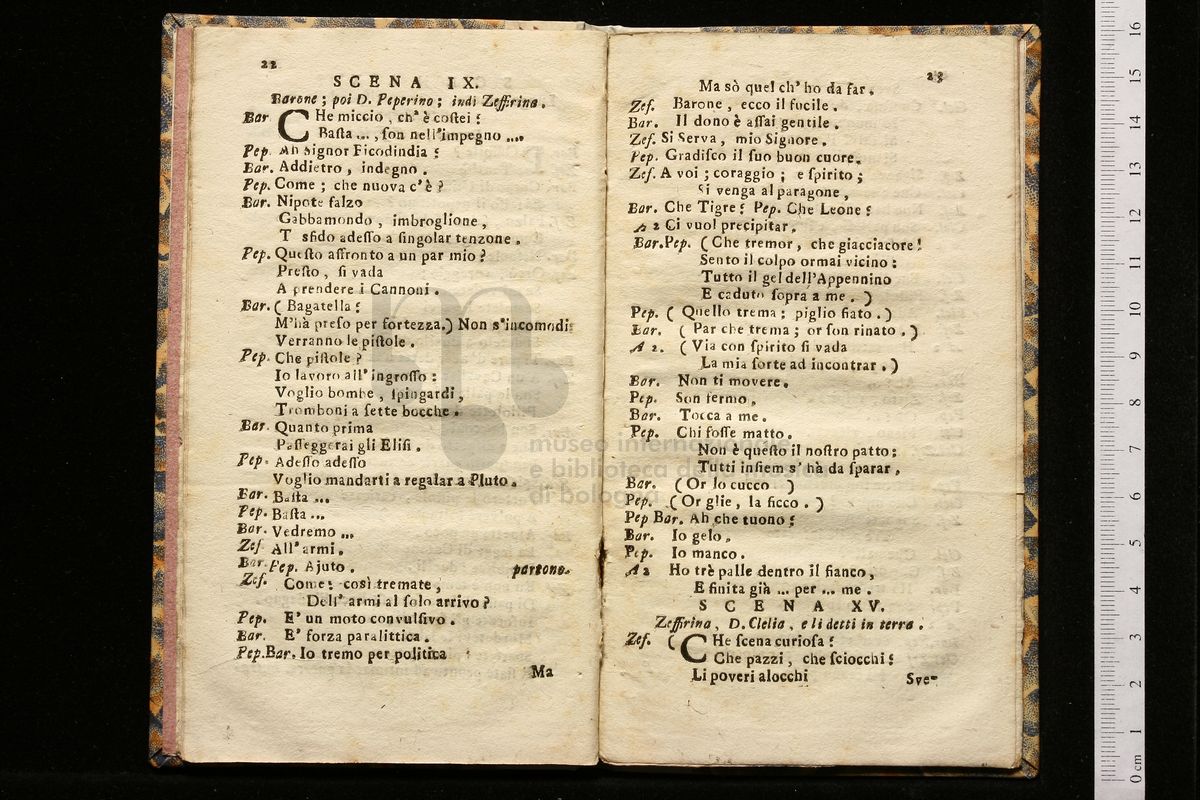 22
SCENA IX.
Barone ; poi D. Peperino ; indi Zeffirina .
Bar CHe miccio , ch' è coſtei !
Baſta ... , ſon nell'impegno ....
Pep. Ah Signor Ficodindia !
Bar. Addietro , indegno .
Pep. Come ; che nuova c'è ?
Bar. Nipote falzo
Gabbamondo , imbroglione ,
T sfido adeſſo a ſingolar tenzone .
Pep. Queſto affronto a un par mio ?
Preſto , ſi vada
A prendere i Cannoni .
Bar. ( Bagatella !
M'hà preſo per fortezza.) Non s'incomodi:
Verranno le piſtole .
Pep. Che piſtole ?
Io lavoro all' ingroſſo :
Voglio bombe , ſpingardi ,
Tromboni a ſette bocche .
Bar. Quanto prima
Paſſeggerai gli Eliſi .
Pep. Adeſſo adeſſo
Voglio mandarti a regalar a Pluto .
Bar. Baſta ...
Pep. Baſta ...
Bar. Vedremo ...
Zef All' armi .
Bar. Pep. Ajuto . partono.
Zef. Come ! così tremate ,
Dell' armi al ſolo arrivo ?
Pep. E' un moto convulſivo .
Bar. E' forza paralittica .
Pep.Bar. Io tremo per politica
Ma
23
Ma sò quel ch' ho da far .
Zef. Barone , ecco il fucile .
Bar. Il dono è aſſai gentile .
Zef. Si Serva , mio Signore .
Pep. Gradiſco il ſuo buon cuore .
Zef. A voi ; coraggio ; e ſpirito ;
Si venga al paragone ,
Bar. Che Tigre ! Pep. Che Leone !
A 2 Ci vuol precipitar .
Bar.Pep. ( Che tremor , che giacciacore !
Sento il colpo ormai vicino :
Tutto il gel dell'Appennino
E caduto ſopra a me . )
Pep. ( Quello trema : piglio fiato . )
Bar. ( Par che trema ; or ſon rinato . )
A 2. ( Via con ſpirito ſi vada
La mia ſorte ad incontrar . )
Bar. Non ti movere .
Pep. Son fermo .
Bar. Tocca a me .
Pep. Chi foſſe matto .
Non è queſto il noſtro patto :
Tutti inſiem s' hà da ſparar .
Bar. ( Or lo cucco )
Pep. ( Or glie , la ficco . )
Pep Bar. Ah che tuono !
Bar. Io gelo .
Pep. Io manco .
A 2 Ho trè palle dentro il fianco ,
E finita già ... per ... me .
SCENA XV.
Zeffirina , D. Clelia , e li detti in terra .
Zef. ( CHe ſcena curioſa !
Che pazzi , che ſciocchi !
Li poveri alocchi
Sve-
museo internazionale
e biblioteca della musica
di bologna
0 cm 1 2 3 4 5 6 7 8 9 10 11 12 13 14 15 16